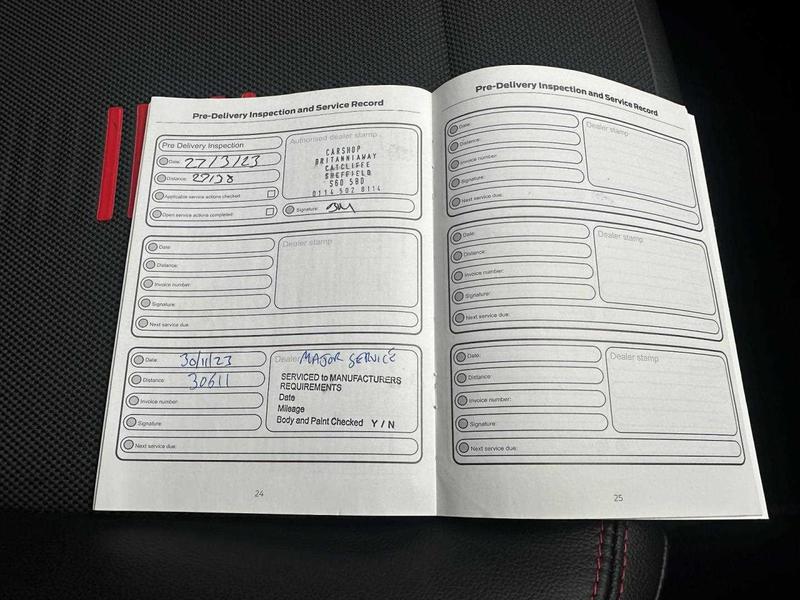 Pre-Delivery Inspection and Service Record
Pre Delivery Inspection
Date: 27/3/23
Distance:
Applicable service actions checked
Open service actions completed:
Authorised dealer stamp
CARSHOP
BRITANNIAWAY
CATCLIFFE
SHEFFIELD
S60 5BD
0114 502 8114
Signature:
Date:
Distance:
Invoice number:
Signature:
Next service due:
Dealer stamp
Date: 30/11/23
Distance: 30611
Invoice number:
Signature:
Next service due:
Dealer MAJOR SERVICE
SERVICED to MANUFACTURERS
REQUIREMENTS
Date
Mileage
Body and Paint Checked Y / N
24
Pre-Delivery Inspection and Service Record
Date:
Distance:
Invoice number:
Signature:
Next service due:
Dealer stamp
Date:
Distance:
Invoice number:
Signature:
Next service due:
Dealer stamp
Date:
Distance:
Invoice number:
Signature:
Next service due:
Dealer stamp
25